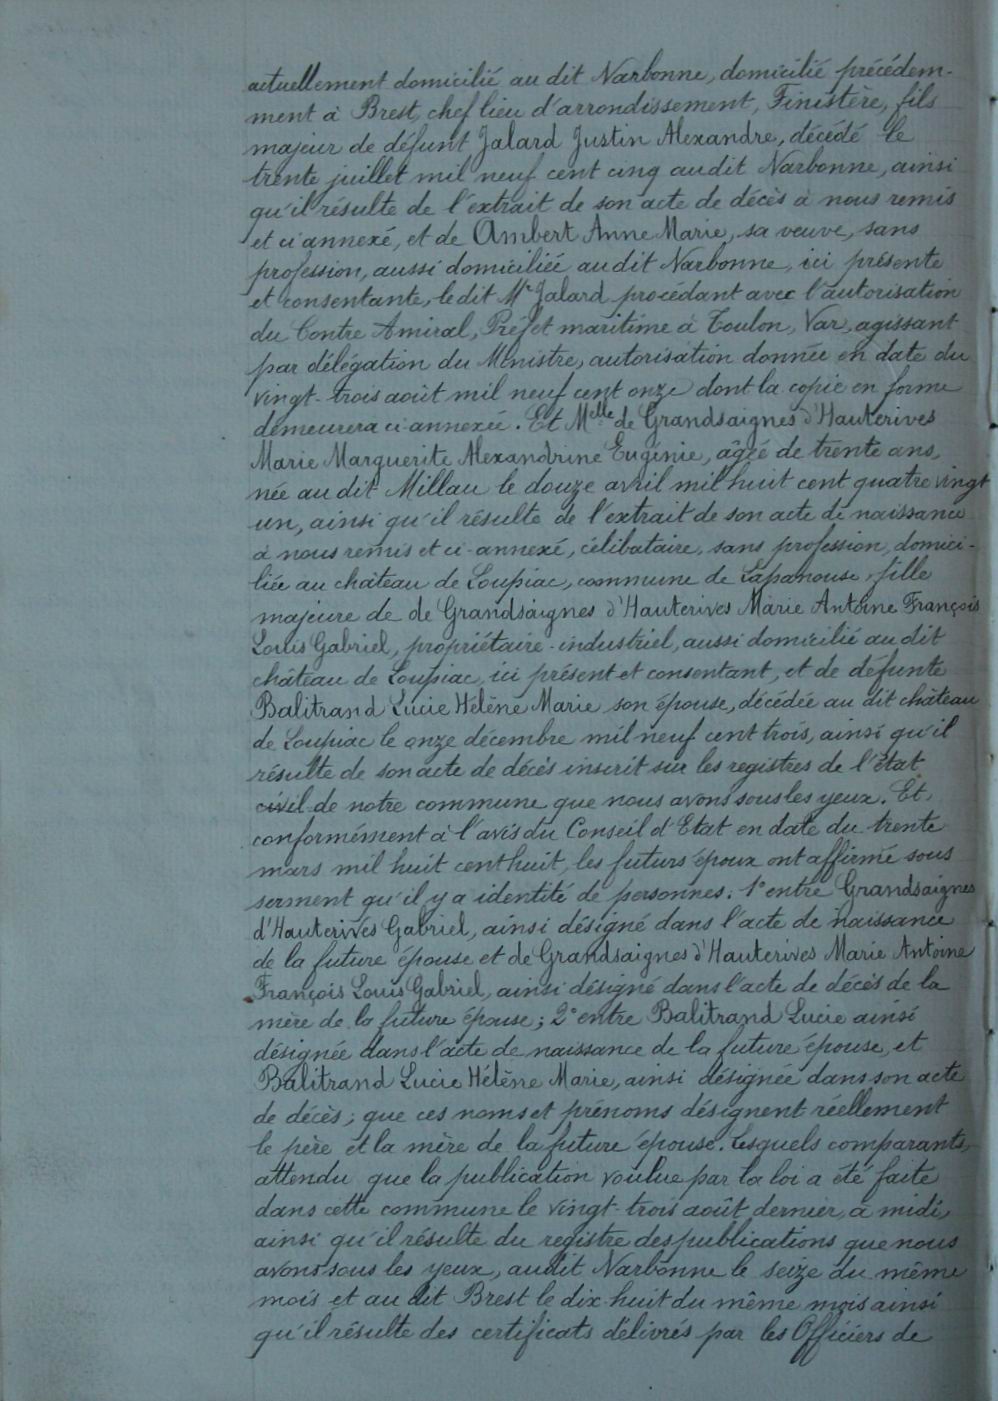 actuellement domicilié au dit Narbonne, domicilié précédem-
ment à Brest, chef lieu d'arrondissement, Finistère, fils
majeur de défunt Jalard Justin Alexandre, décédé le
trente juillet mil neuf cent cinq audit Narbonne, ainsi
qu'il résulte de l'extrait de son acte de décès à nous remis
et ci annexé, et de Ambert Anne Marie, sa veuve, sans
profession, aussi domiciliée au dit Narbonne, ici présente
et consentante, le dit Mr Jalard procédant avec l'autorisation
du Contre Amiral, Préfet maritime à Toulon, Var, agissant
par délégation du Ministre, autorisation donnée en date du
vingt-trois août mil neuf cent onze dont la copie en forme
demeurera ci annexée. Et Melle de Grandsaignes d'Hauterives
Marie Marguerite Alexandrine Eugénie, âgée de trente ans,
née au dit Millau le douze avril mil huit cent quatre vingt
un, ainsi qu'il résulte de l'extrait de son acte de naissance
à nous remis et ci-annexé, célibataire, sans profession, domici-
liée au château de Loupiac, commune de Lapanouse, fille
majeure de de Grandsaignes d'Hauterives Marie Antoine François
Louis Gabriel, propriétaire-industriel, aussi domicilié au dit
château de Loupiac, ici présent et consentant, et de défunte
Balitrand Lucie Hélène Marie son épouse, décédée au dit château
de Loupiac le onze décembre mil neuf cent trois, ainsi qu'il
résulte de son acte de décès inscrit sur les registres de l'état
civil de notre commune que nous avons sous les yeux. Et,
conformément à l'avis du Conseil d'Etat en date du trente
mars mil huit cent huit, les futurs époux ont affirmé sous
serment qu'il y a identité de personnes: 1° entre Grandsaignes
d'Hauterives Gabriel, ainsi désigné dans l'acte de naissance
de la future épouse et de Grandsaignes d'Hauterives Marie Antoine
François Louis Gabriel, ainsi désigné dans l'acte de décès de la
mère de la future épouse; 2° entre Balitrand Lucie ainsi
désignée dans l'acte de naissance de la future épouse, et
Balitrand Lucie Hélène Marie, ainsi désignée dans son acte
de décès; que ces noms et prénoms désignent réellement
le père et la mère de la future épouse. Lesquels comparants,
attendu que la publication voulue par la loi a été faite
dans cette commune le vingt-trois août dernier, à midi,
ainsi qu'il résulte du registre des publications que nous
avons sous les yeux, audit Narbonne le seize du même
mois et au dit Brest le dix huit du même mois ainsi
qu'il résulte des certificats délivrés par les Officiers de